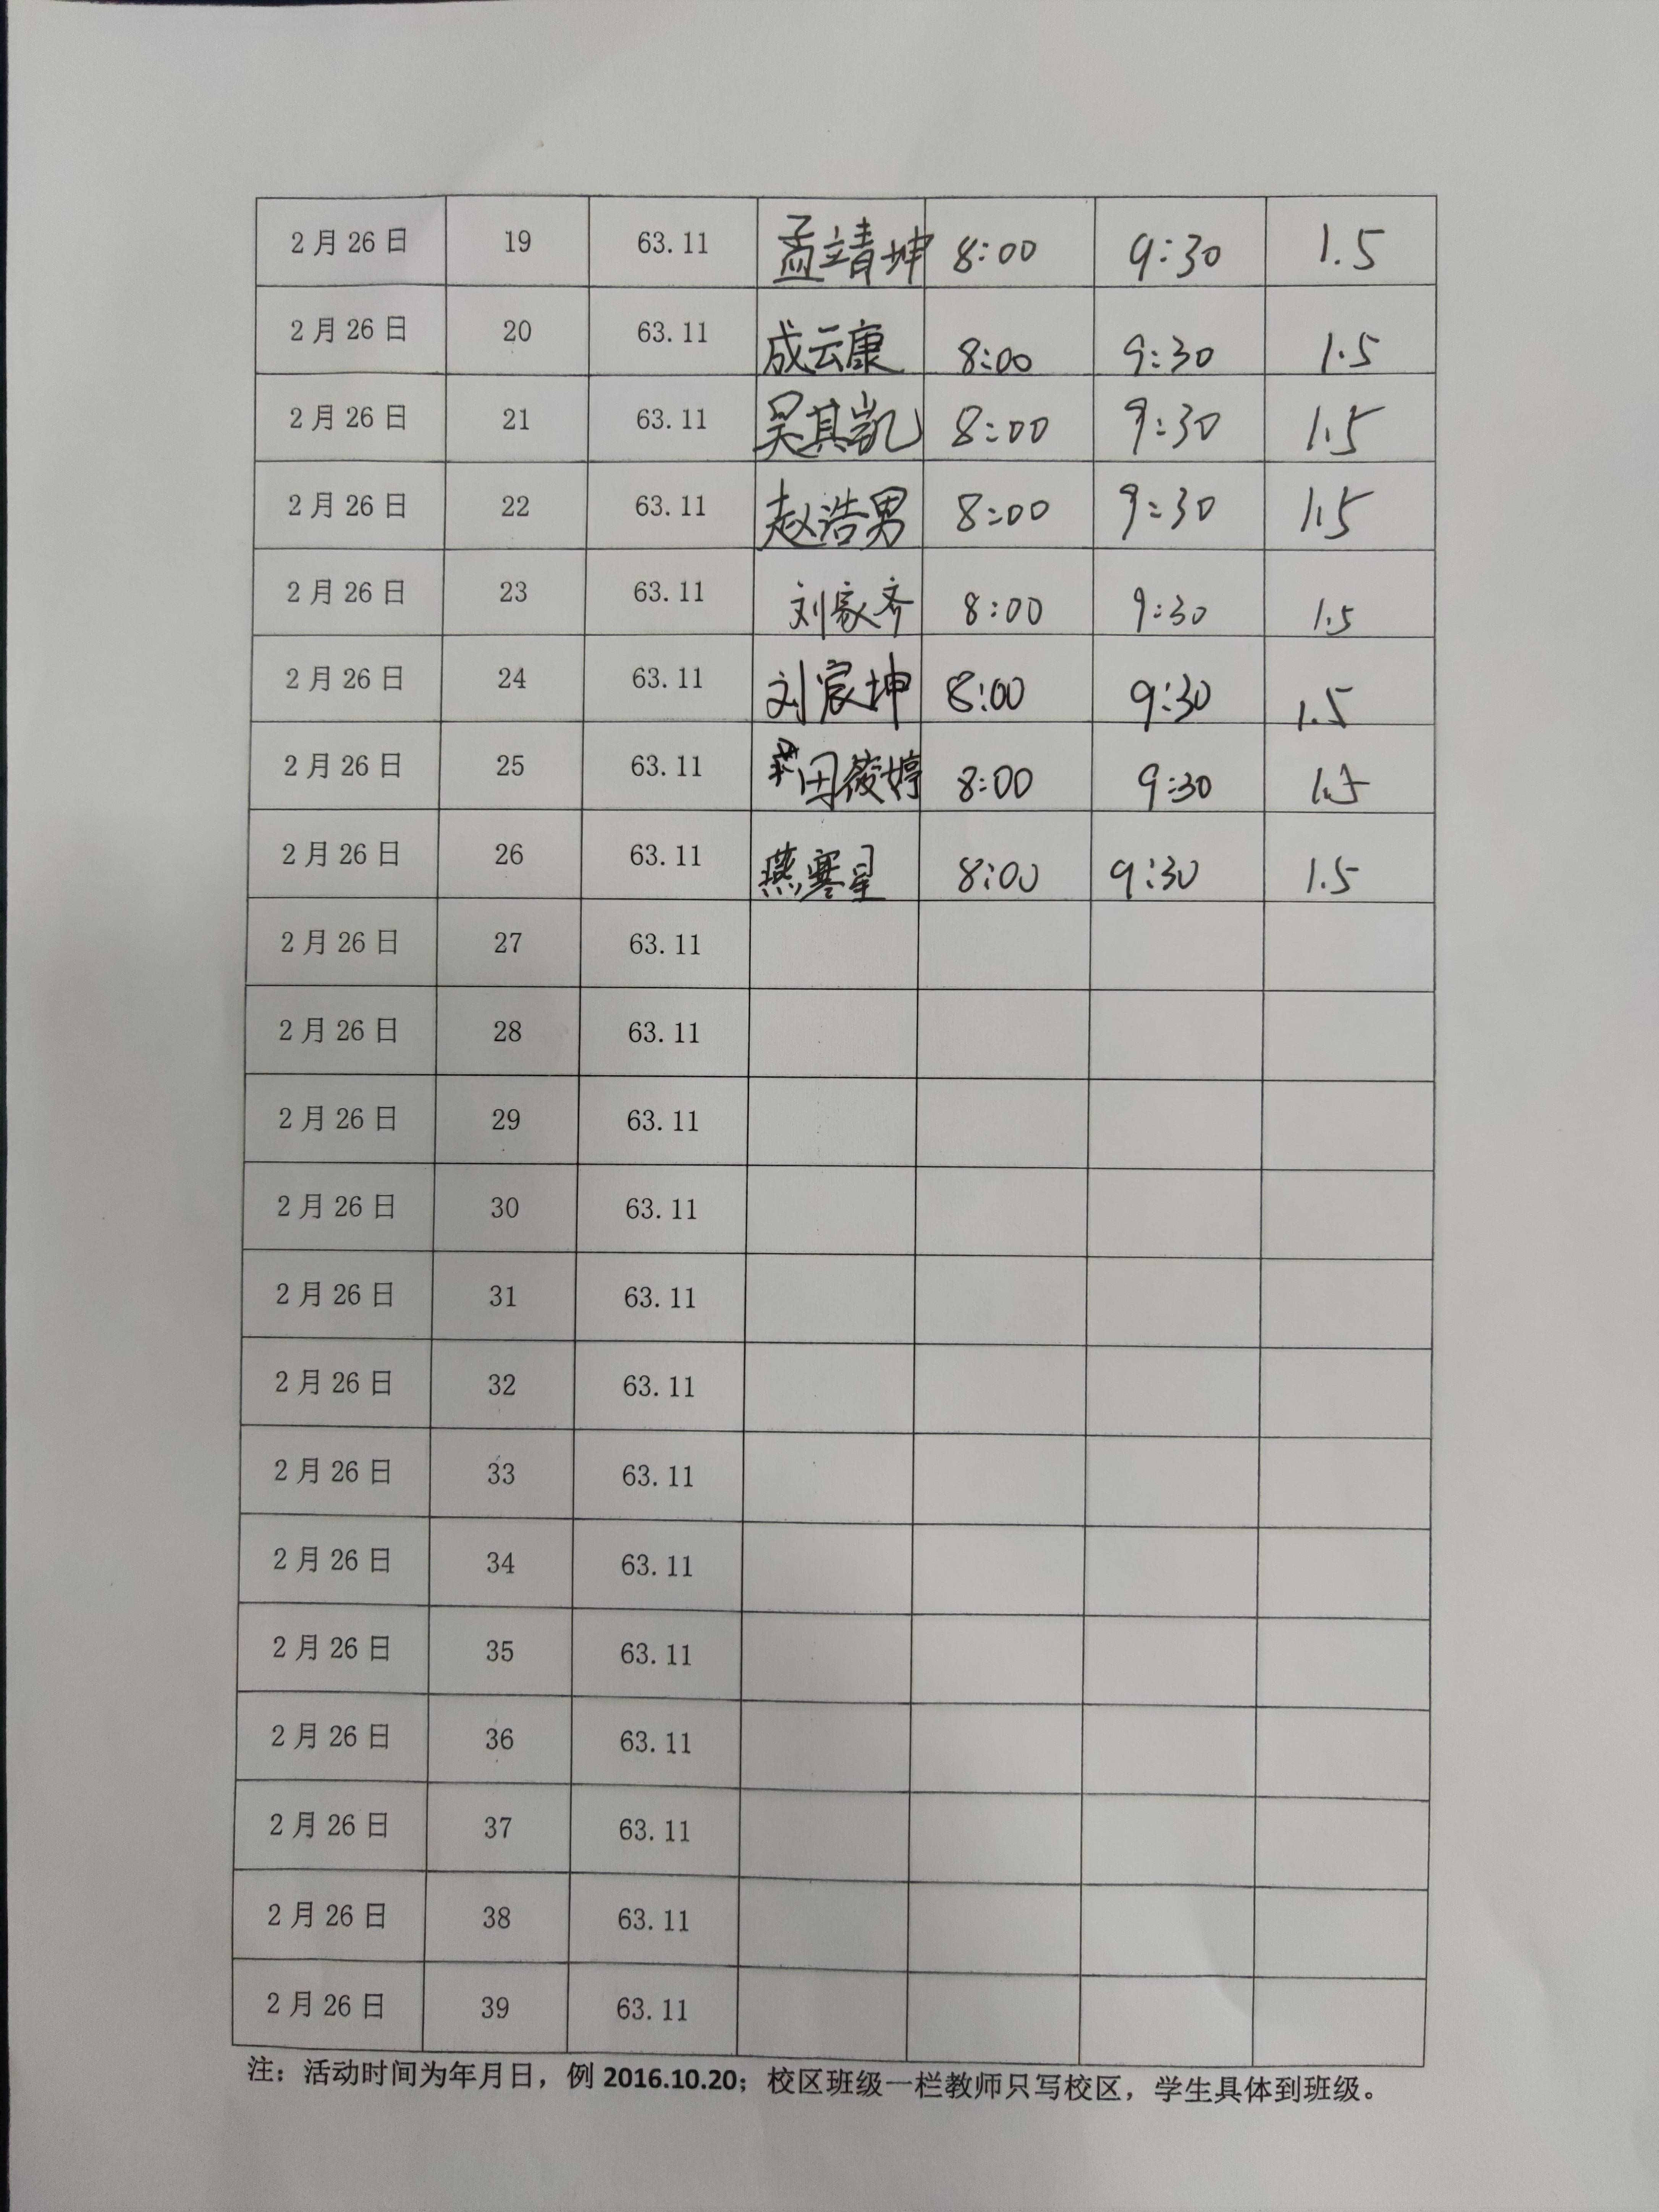 2月26日 19 63.11 孟靖坤 8:00 9:30 1.5
2月26日 20 63.11 成云康 8:00 9:30 1.5
2月26日 21 63.11 吴其凯 8:00 9:30 1.5
2月26日 22 63.11 赵浩男 8:00 9:30 1.5
2月26日 23 63.11 刘家齐 8:00 9:30 1.5
2月26日 24 63.11 刘宸坤 8:00 9:30 1.5
2月26日 25 63.11 田筱婷 8:00 9:30 1.5
2月26日 26 63.11 燕寒星 8:00 9:30 1.5
2月26日 27 63.11
2月26日 28 63.11
2月26日 29 63.11
2月26日 30 63.11
2月26日 31 63.11
2月26日 32 63.11
2月26日 33 63.11
2月26日 34 63.11
2月26日 35 63.11
2月26日 36 63.11
2月26日 37 63.11
2月26日 38 63.11
2月26日 39 63.11
注：活动时间为年月日，例 2016.10.20；校区班级一栏教师只写校区，学生具体到班级。